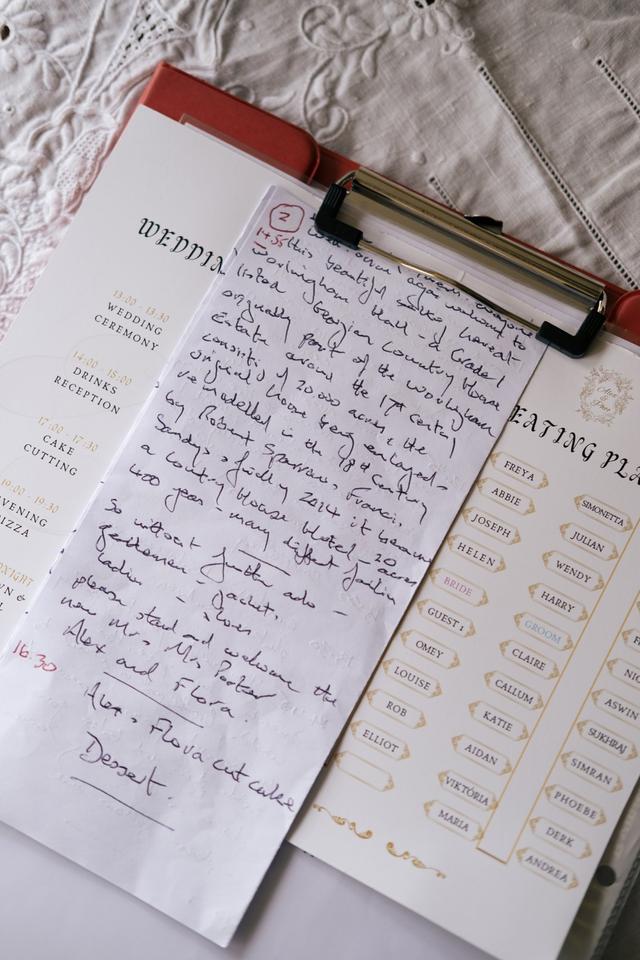 WEDDIN
13:00 - 13:30
WEDDING
CEREMONY
14:00 - 15:00
DRINKS
RECEPTION
17:00 - 17:30
CAKE
CUTTING
19:00 - 19:30
EVENING
PIZZA
2
14:55
this beautiful
again welcome to
Worlingham Hall - a Grade 1
listed Georgian Country House
originally part of the Worlingham
Estate around the 17th century
of 20000 acres, the
original house being enlarged -
remodelled in the 18th century
by Robert Sparrow, Francis
Sandys, finally 2014 it became
a Country House Hotel - 20 acres
many different
So without further ado -
gentlemen - jacket.
ladies -
please stand and welcome the
new Mr & Mrs
Alex and Flora.
16:30
Alex & Flora cut cake
Dessert.
EATING PLA
FREYA
ABBIE
JOSEPH
HELEN
BRIDE
GUEST 1
OMEY
LOUISE
ROB
ELLIOT
SIMONETTA
JULIAN
WENDY
HARRY
GROOM
CLAIRE
CALLUM
KATIE
AIDAN
VIKTÓRIA
MARIA
NIC
ASWIN
SUKHRAJ
SIMRAN
PHOEBE
DERK
ANDREA